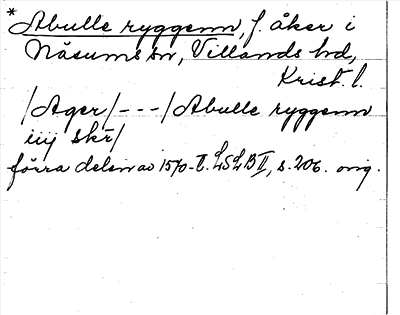 * Abulle ryggenn, f. åker i
Näsums sn, Villands hd,
Krist. l.
/Ager/---/Abulle ryggenn
iiij skr/
förra delen av 1570-t. LSLB II, s. 206. orig.